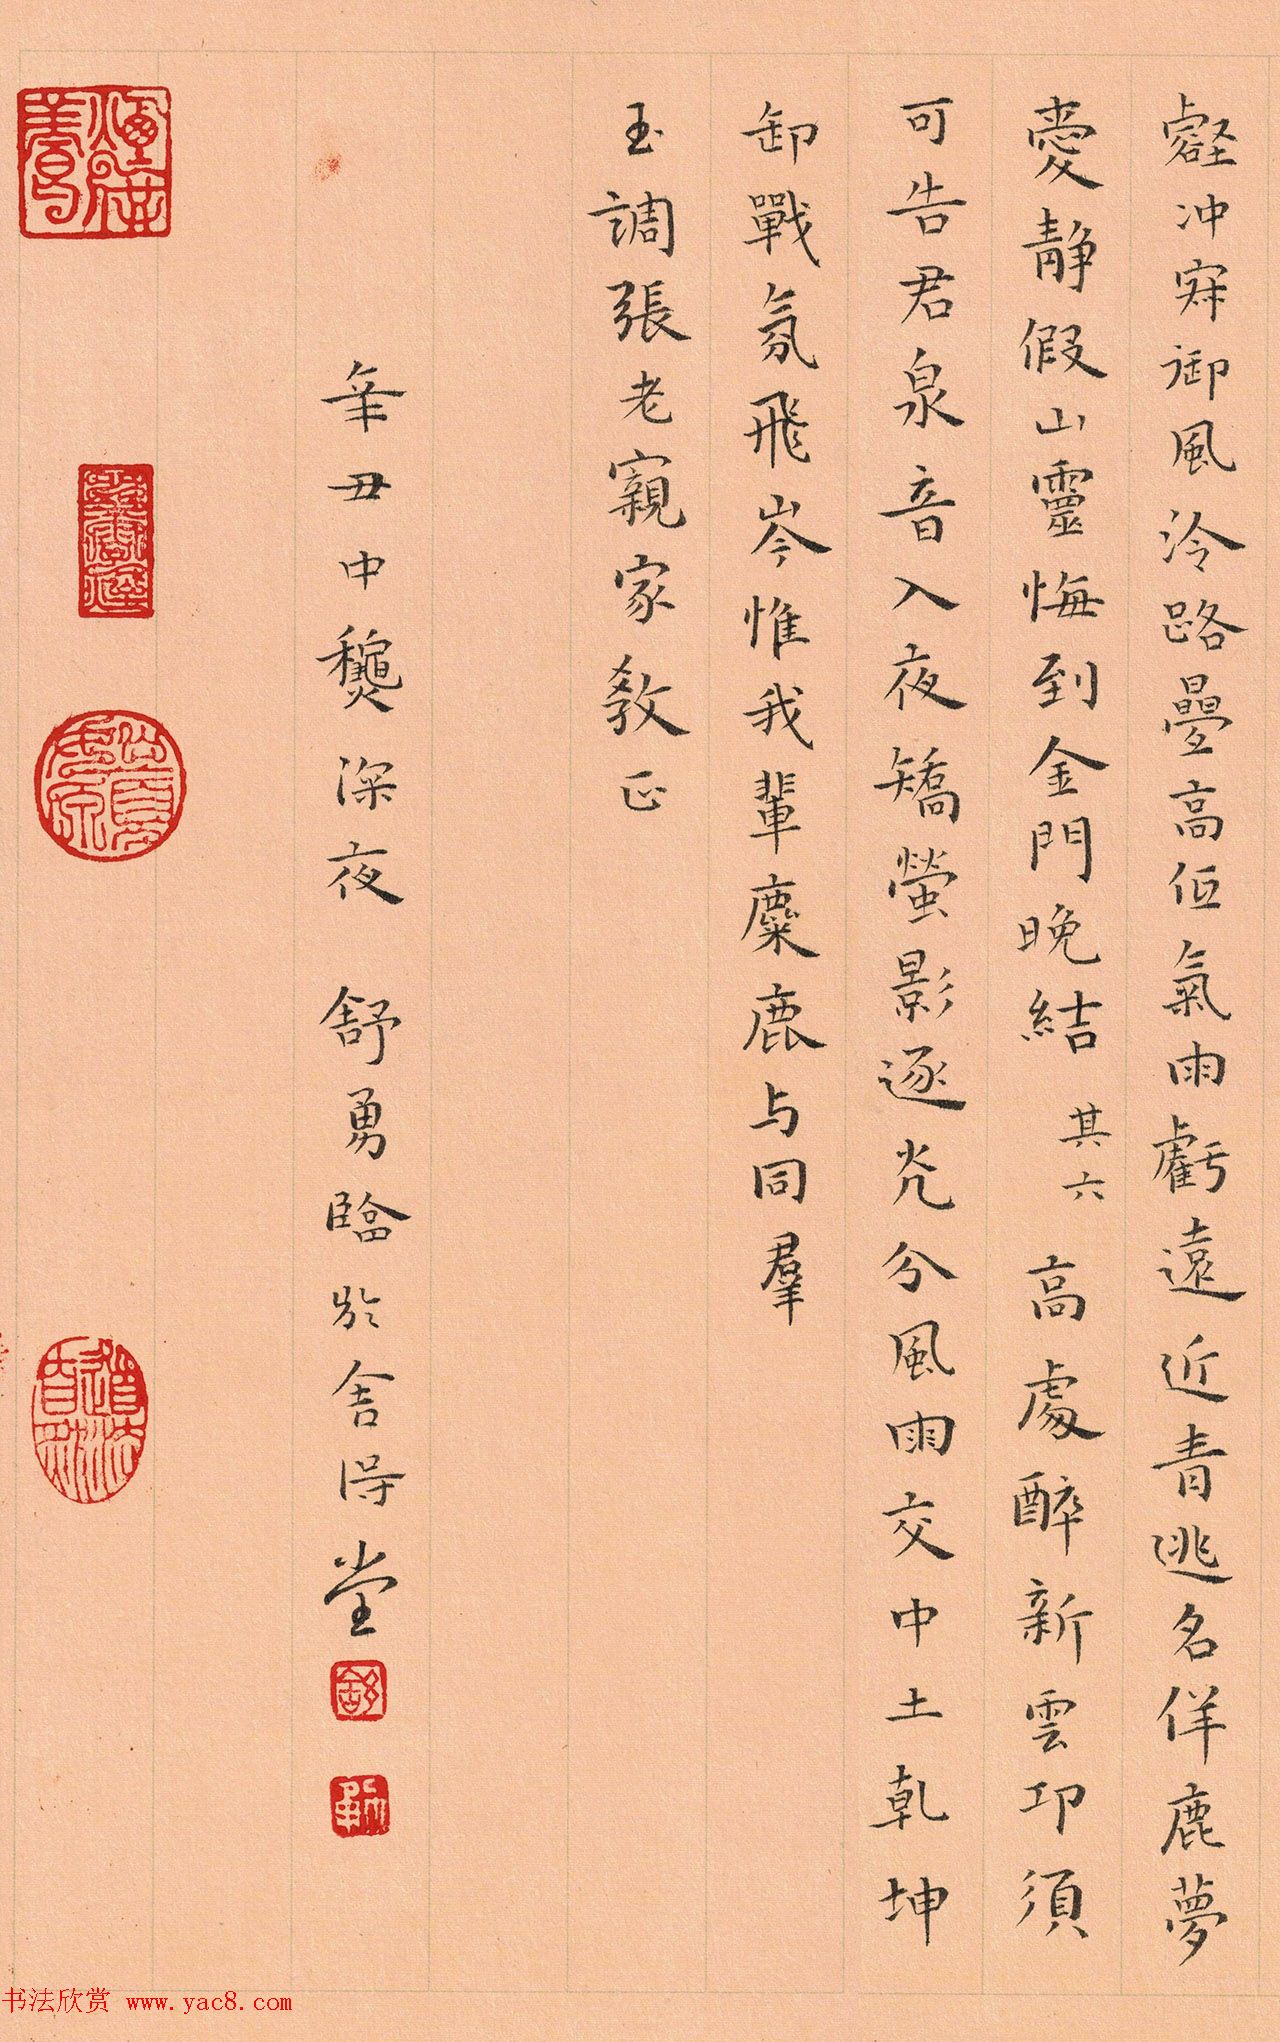 壑冲寐御風泠路疊高低氣雨虧遠近青逃名佯鹿夢
愛靜假山靈悔到金門晚結 其六 高處醉新雲邛須
可告君泉音入夜矯螢影逐光分風雨交中土乾坤
卸戰氛飛岑惟我輩麋鹿与同羣
玉調張老寴家教正
辛丑中龝深夜 舒勇臨於舍得堂
书法欣赏 www.yac8.com